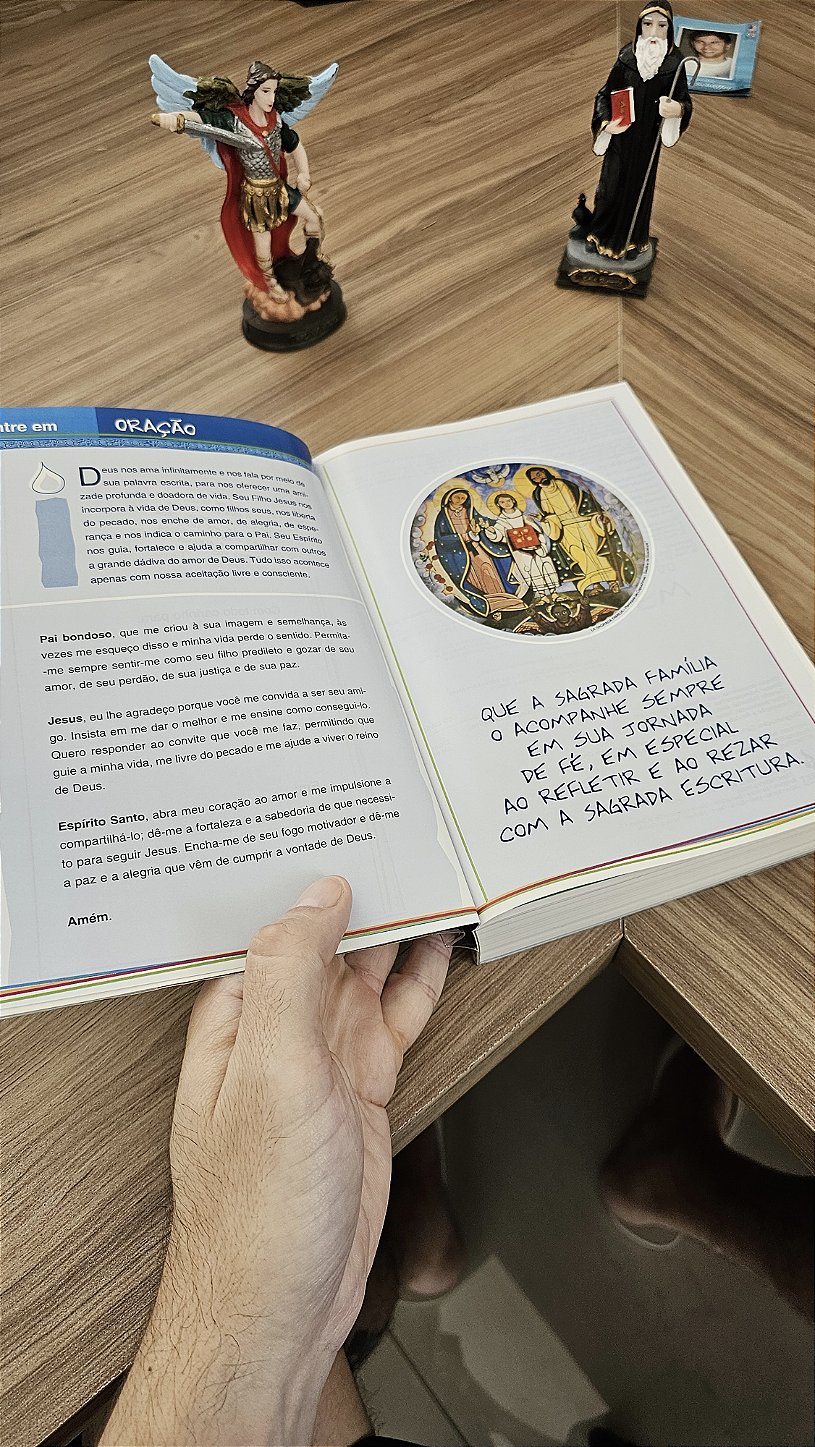 ntre em ORAÇÃO
Deus nos ama infinitamente e nos fala por meio de
sua palavra escrita, para nos oferecer uma ami-
zade profunda e doadora de vida. Seu Filho Jesus nos
incorpora à vida de Deus, como filhos seus, nos liberta
do pecado, nos enche de amor, de alegria, de espe-
rança e nos indica o caminho para o Pai. Seu Espírito
nos guia, fortalece e ajuda a compartilhar com outros
a grande dádiva do amor de Deus. Tudo isso acontece
apenas com nossa aceitação livre e consciente.
Pai bondoso, que me criou à sua imagem e semelhança, às
vezes me esqueço disso e minha vida perde o sentido. Permita-
-me sempre sentir-me como seu filho predileto e gozar de seu
amor, de seu perdão, de sua justiça e de sua paz.
Jesus, eu lhe agradeço porque você me convida a ser seu ami-
go. Insista em me dar o melhor e me ensine como consegui-lo.
Quero responder ao convite que você me faz, permitindo que
guie a minha vida, me livre do pecado e me ajude a viver o reino
de Deus.
Espírito Santo, abra meu coração ao amor e me impulsione a
compartilhá-lo; dê-me a fortaleza e a sabedoria de que necessi-
to para seguir Jesus. Encha-me de seu fogo motivador e dê-me
a paz e a alegria que vêm de cumprir a vontade de Deus.
Amém.
QUE A SAGRADA FAMÍLIA
O ACOMPANHE SEMPRE
EM SUA JORNADA
DE FÉ, EM ESPECIAL
AO REFLETIR E AO REZAR
COM A SAGRADA ESCRITURA.